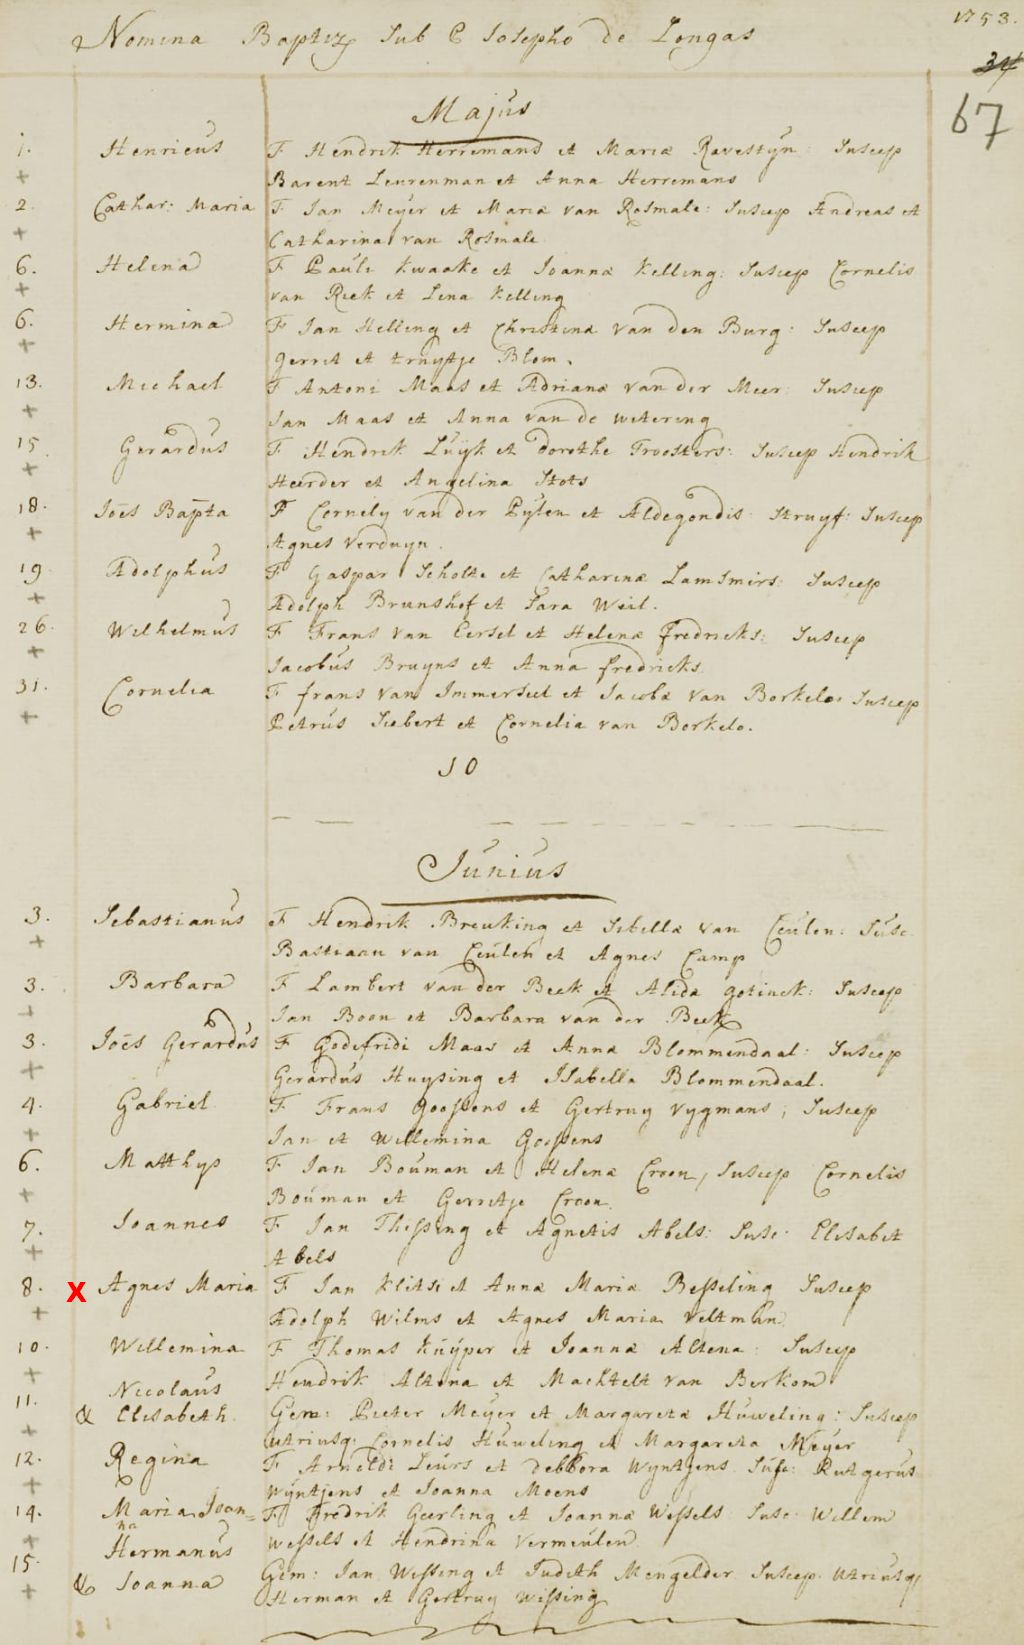 1753.
Nomina Baptiz Sub P Josepho de Longas
34
67
Majus
1. Henricus F Hendrik Herremans et Mariæ Ravestÿn: Suscep
+ Barent Leurenman et Anna Herremans
2. Cathar: Maria F Jan Meÿer et Mariæ van Rosmale: Suscep Andreas et
+ Catharina van Rosmale
6. Helena F Pauli Kwaake et Joannæ Kelling: Suscep Cornelis
+ van Rick et Lena Kelling
6. Hermina F Jan Helling et Christinæ van den Burg: Suscep
+ Gerrit et truytje Blom.
13. Michael F Antoni Maas et Adrianæ van der Meer: Suscep
+ Jan Maas et Anna van de wetering
15. Gerardus F Hendrik Luÿk et dorothe Troosters: Suscep Hendrik
+ Heerder et Angelina Stots
18. Joēs Bap̄ta F Cornely van der Pÿlen et Aldegondis Struyf: Suscep
+ Agnes Verduyn.
19 Adolphus F Gaspar Scholte et Catharinæ Lamsmirs: Suscep
+ Adolph Brunshof et Sara Weil.
26. Wilhelmus F Frans van Eersel et Helenæ fredricks: Suscep
+ Jacobus Bruyns et Anna fredricks.
31. Cornelia F frans van Immerseel et Jacobæ van Borkelo: Suscep
+ Petrus Siebert et Cornelia van Borkelo.
10
Junius
3. Sebastianus F Hendrik Breuking et Sibellæ van Ceulen: Susc
+ Bastiaan van Ceulen et Agnes Camp
3. Barbara F Lambert van der Beek et Alidæ gotinck: Suscep
+ Jan Boon et Barbara van der Beek
3. Joēs Gerardus F Godefridi Maas et Annæ Blommendaal: Suscep
+ Gerardus Huysing et Isabella Blommendaal.
4. Gabriel F Frans Goossens et Gertruy Vygmans; Suscep
+ Jan et Willemina Goossens
6. Matthys F Jan Bouman et Helenæ Croon, Suscep Cornelis
+ Bouman et Gerritje Croon.
7. Joannes F Jan Thissing et Agnetis Abels: Susc: Elisabet
+ Abels
8. X Agnes Maria F Jan Klitsi et Annæ Mariæ Besseling Suscep
+ Adolph Wilms et Agnes Maria Veltman
10. Willemina F Thomas Kuÿper et Joannæ Altena: Suscep
+ Hendrik Altena et Machtelt van Berkom
11. Nicolaus
& Elisabeth. Gem: Pieter Meÿer et Margaretæ Huweling: Suscep
+ utriusq: Cornelis Huweling et Margareta Meÿer
12. Regina F Arnoldi Leurs et debbora Wyntjens Susc: Rutgerus
+ Wÿntjens et Joanna Moens
14. Maria Joan= F Fredrik Geerling et Joannæ Wessels: Susc: Willem
na
+ Wessels et Hendrina Vermeulen
15. Hermanus
& Joanna Gem: Jan Wissing et Judith Mengelder Suscep: Utriusq:
+ Herman et Gertruy Wissing